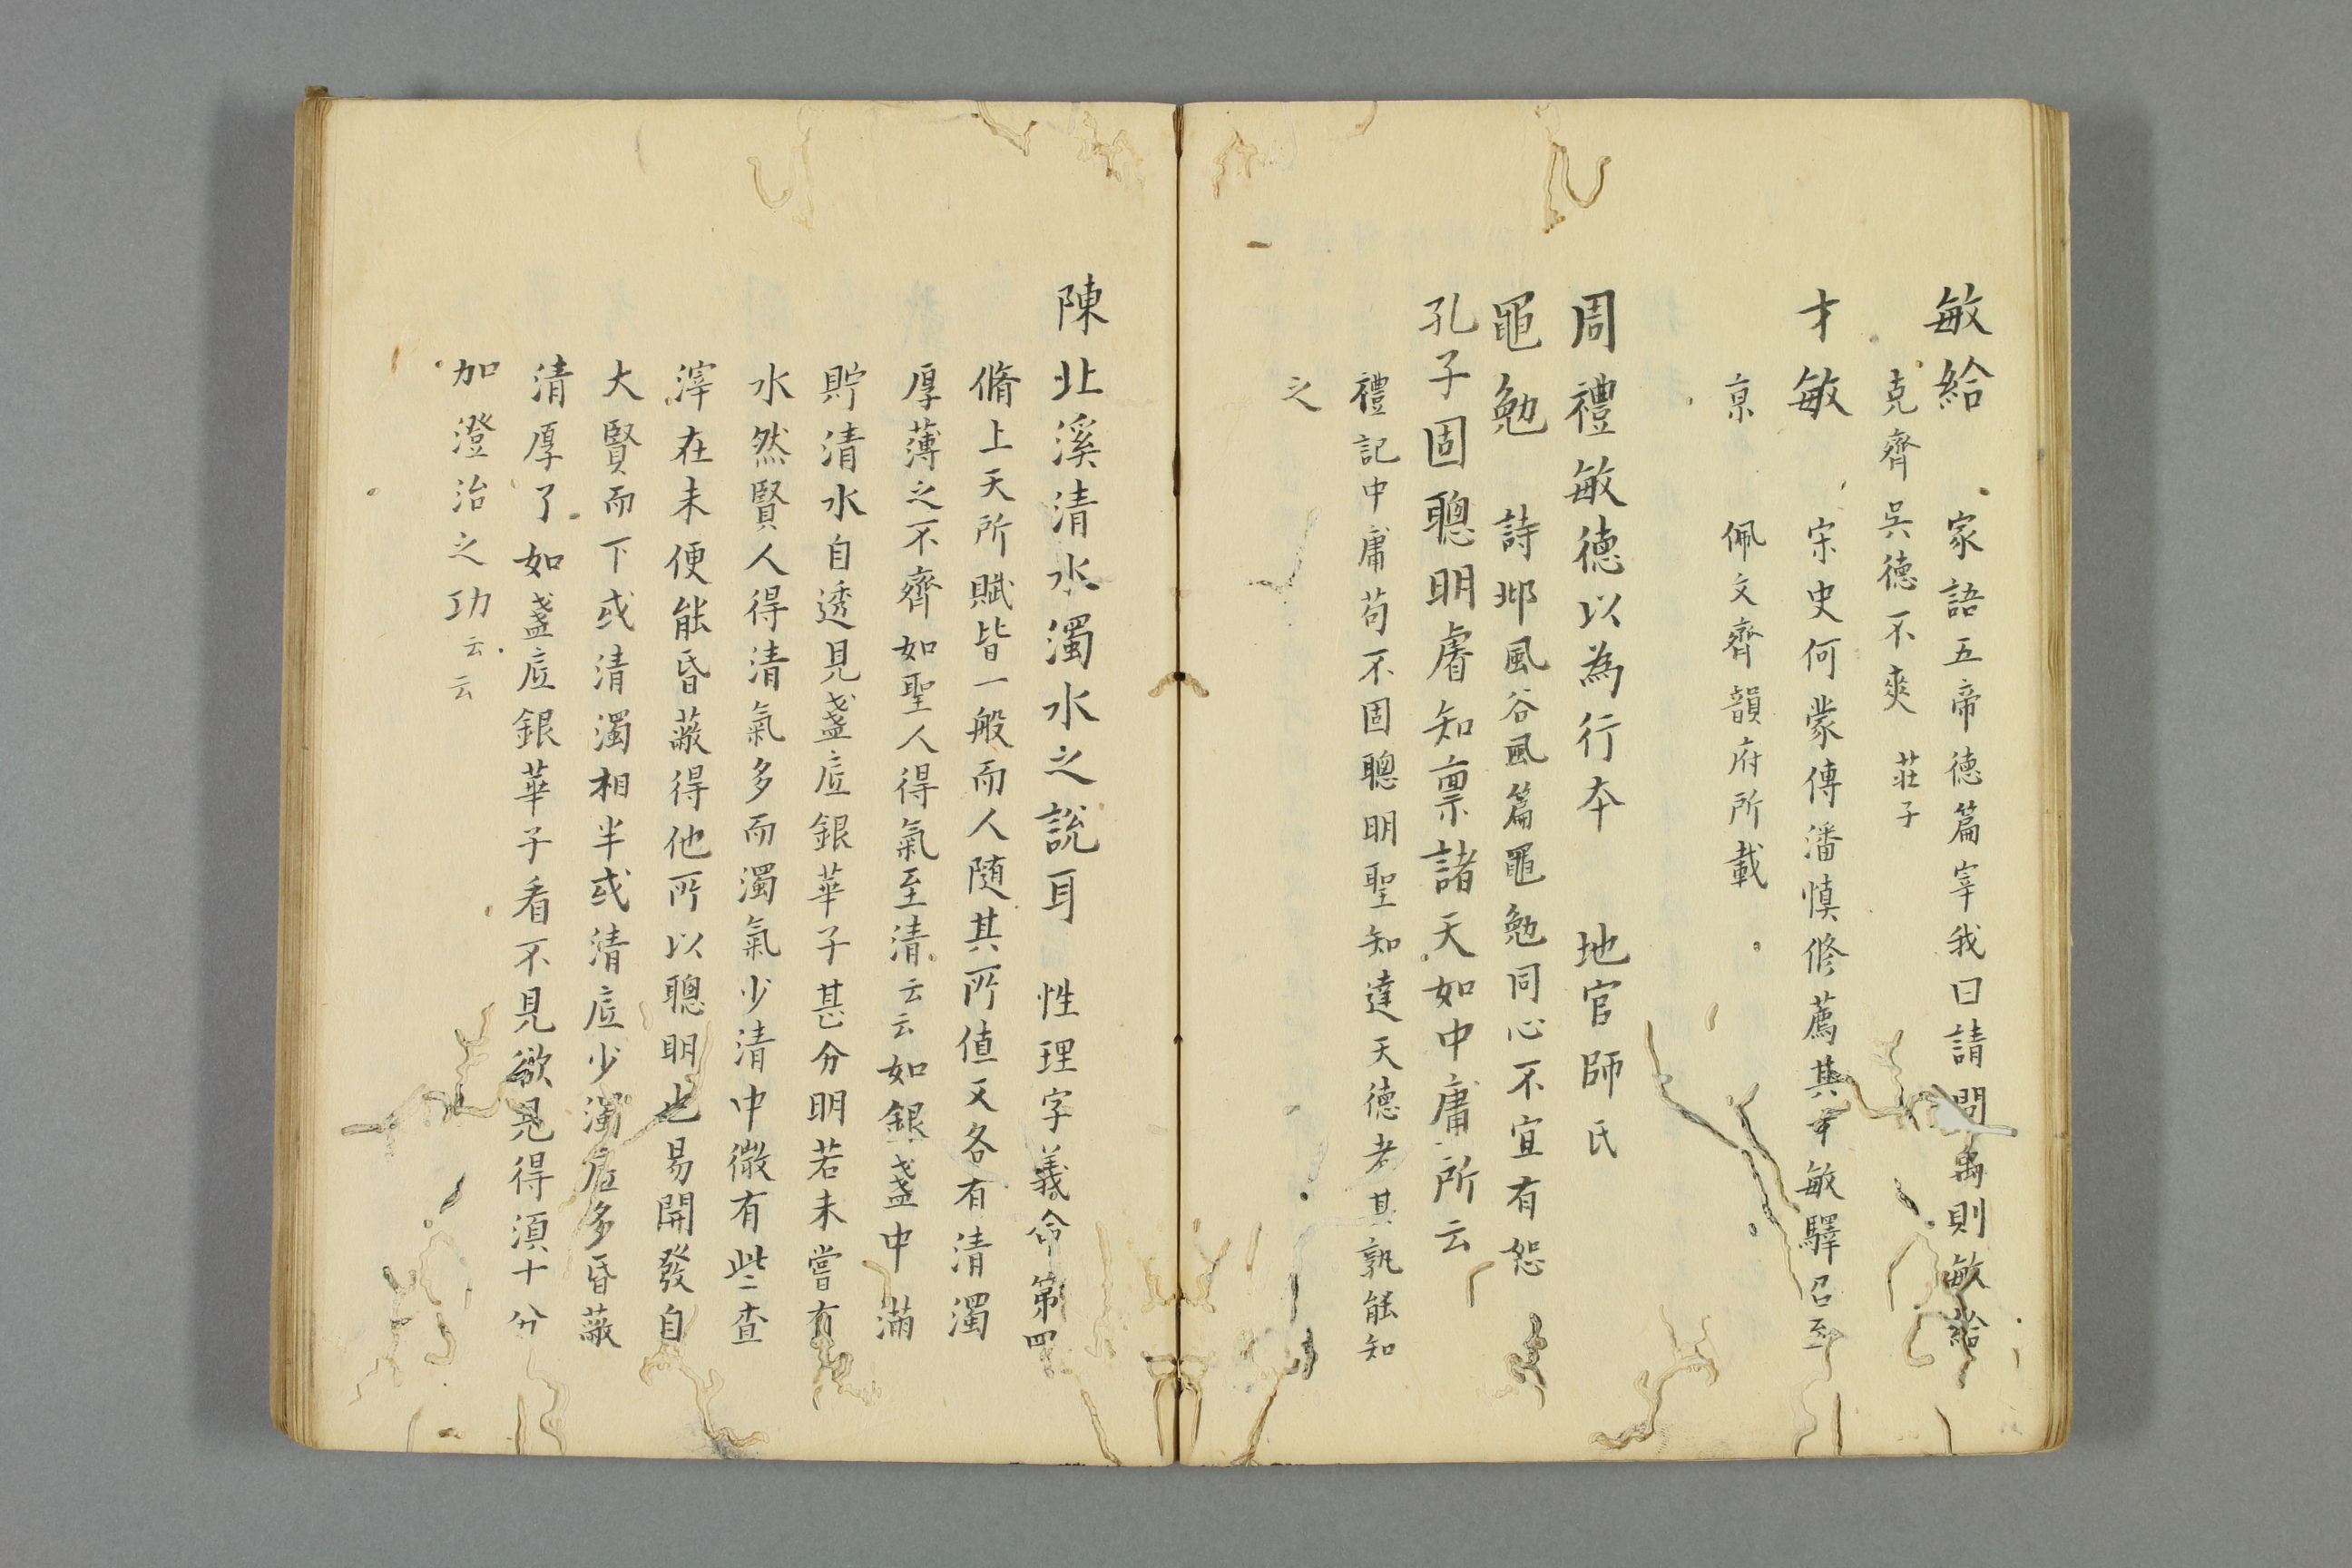 敏給　家語五帝徳篇宰我曰請問禹則敏給
克齊吴徳不爽　荘子
才敏　宋史何蒙傳潘慎修薦其才敏驛召至
亰　佩文齊韻府所載
周禮敏徳以為行本　地官師氏
黽勉　詩邶風谷風篇黽勉同心不宜有怒
孔子固聰明睿知禀諸天如中庸所云
禮記中庸苟不固聰明聖知達天徳者其孰能知
之
陳北溪清水濁水之說耳　性理字義命第四
脩上天所賦皆一般而人随其所値又各有清濁
厚薄之不齊如聖人得氣至清云云如銀盞中満
貯清水自透見盞底銀華子甚分明若未嘗有
水然賢人得清氣多而濁氣少清中微有些査
滓在未便能昏蔽得他所以聰明也易開發自
大賢而下或清濁相半或清底少濁底多昏蔽
清厚了如盞底銀華子看不見欲見得湏十分
加澄治之功云云